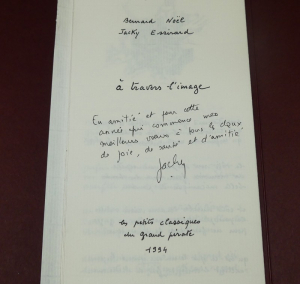 Bernard Noël
Jacky Essirard
à travers l'image
En amitié et pour cette
année qui commence mes
meilleurs vœux à tous les deux,
de joie, de santé et d'amitié.
Jacky
les petits classiques
du grand pirate
1994